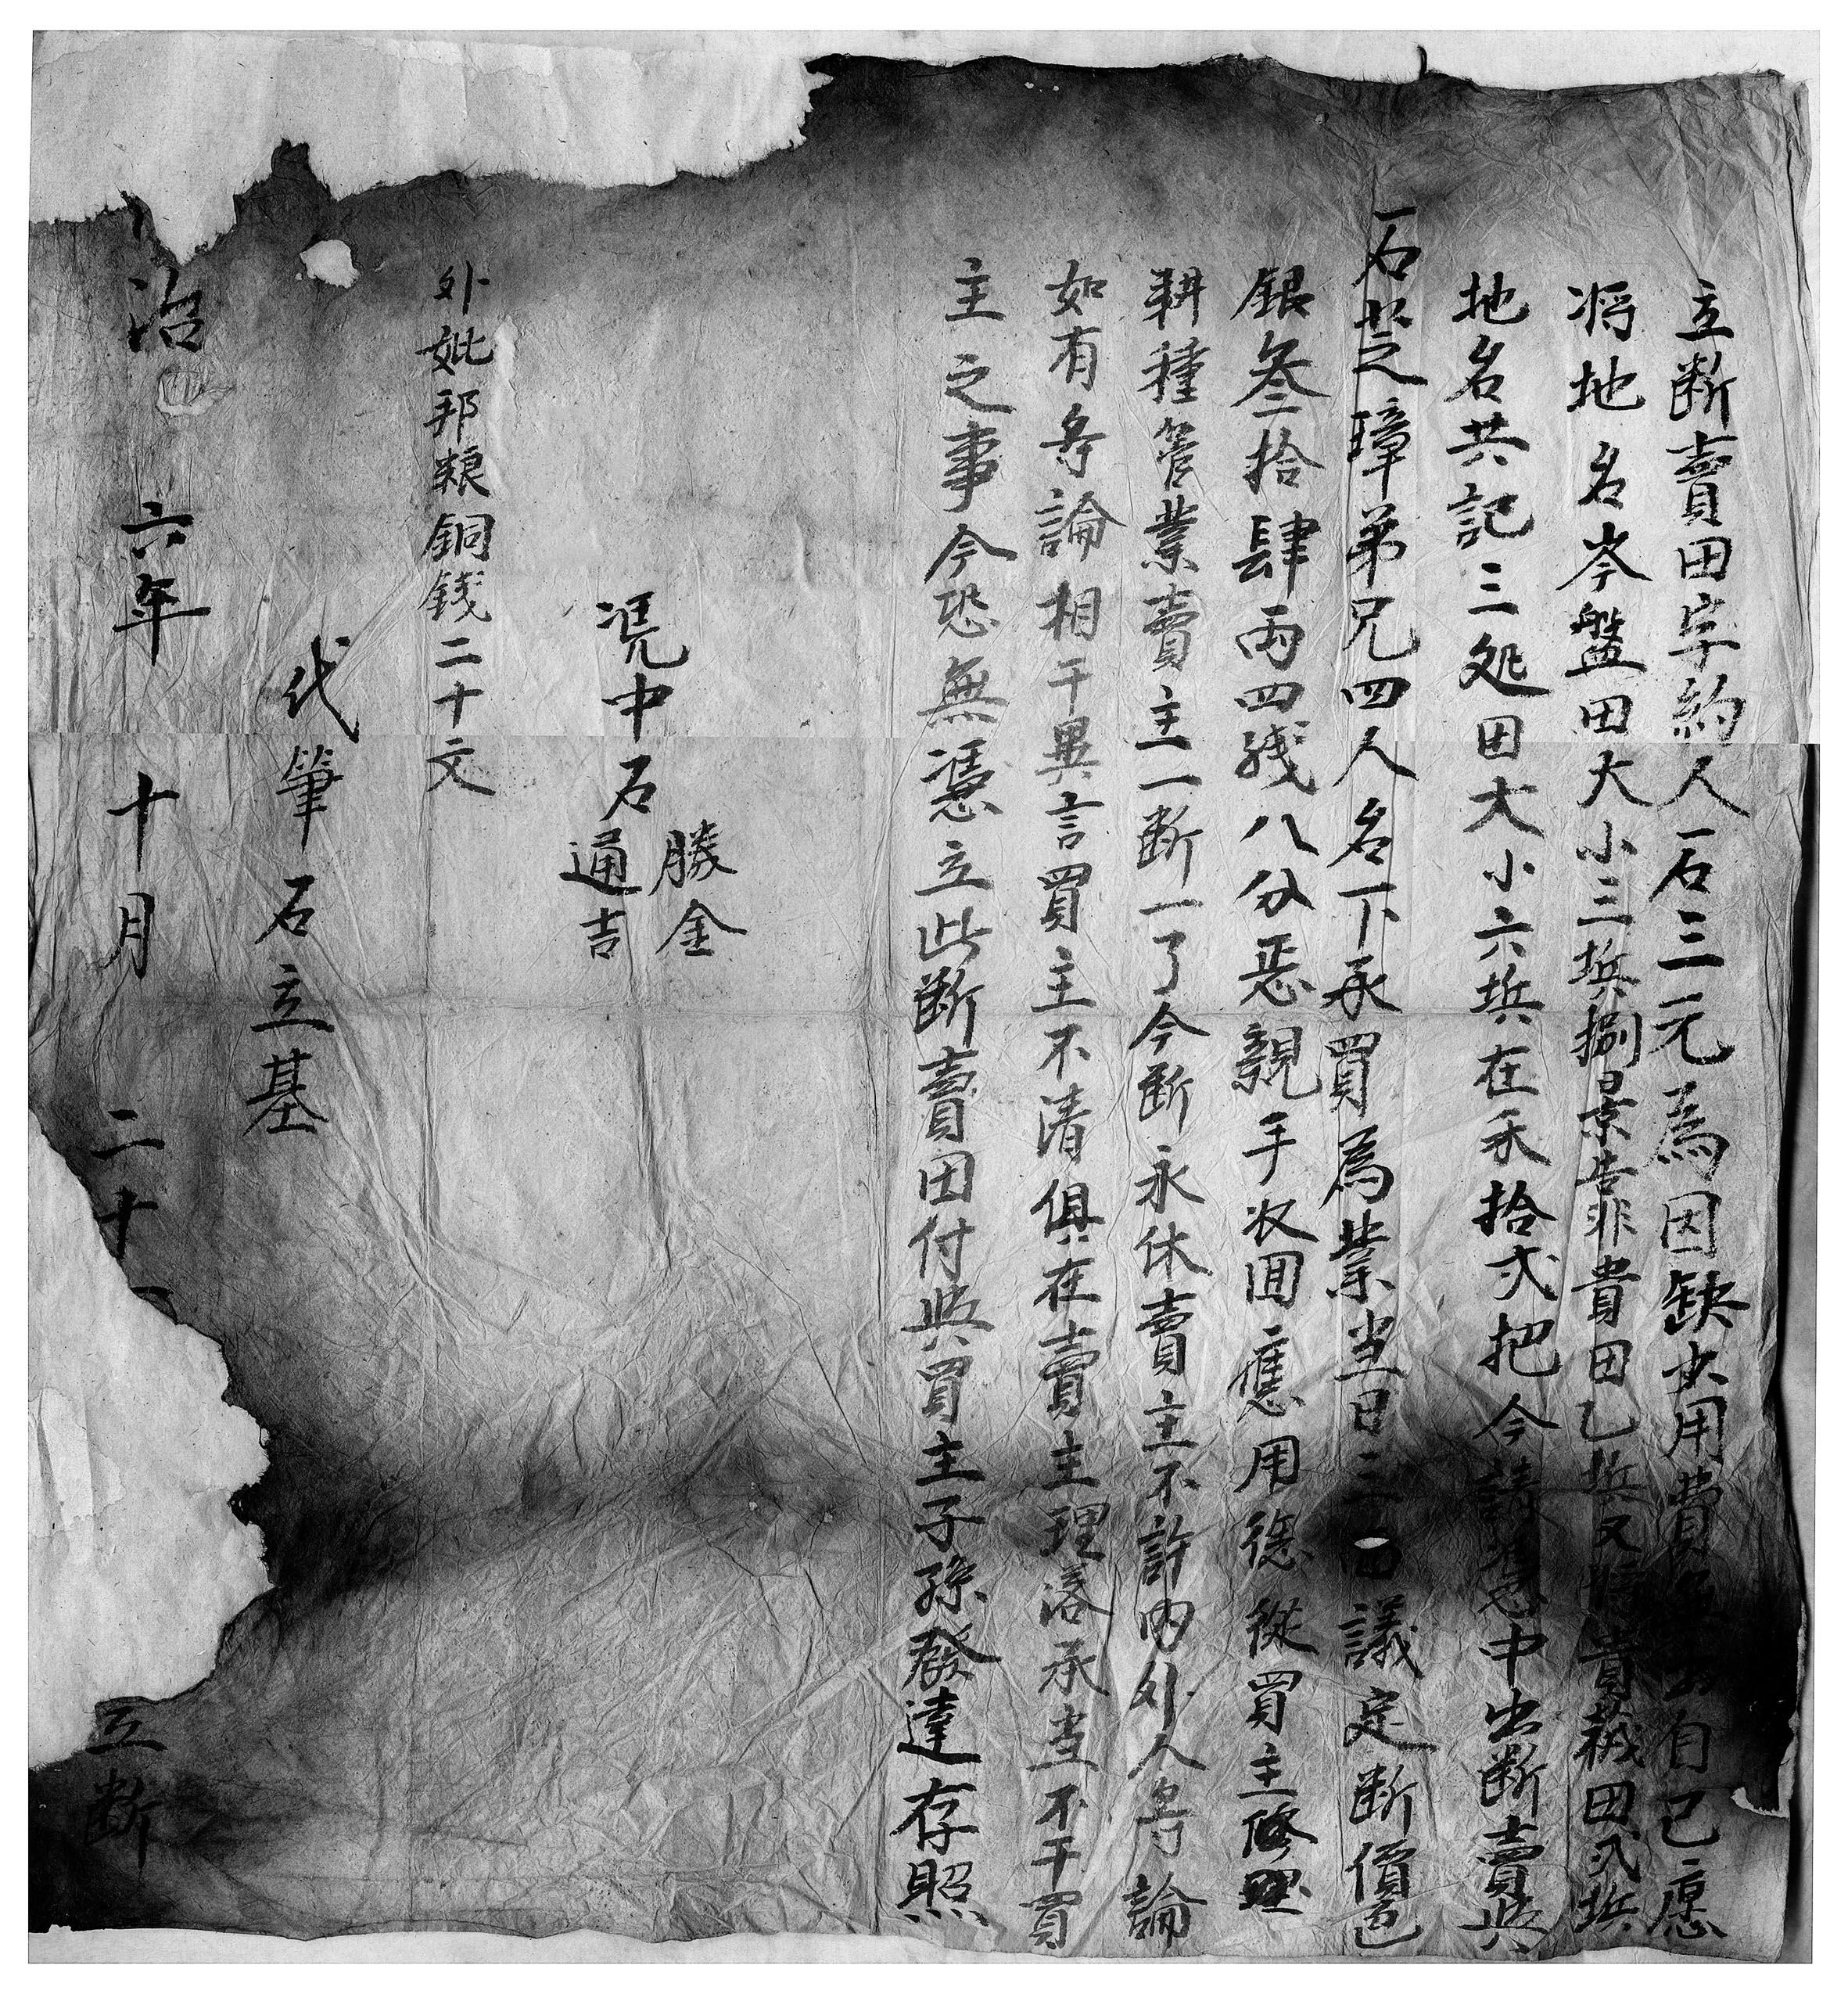 立断賣田字約人石三元為因缺少用費無出自己愿
将地名岑盤田大小三坵捌景告非貴田乙坵又将貴義田弍坵
地名共記三処田大小六坵在禾拾弍把今請憑中出断賣與
石芝璋弟兄四人名下承買為業当日三面議定断價色
銀叁拾肆両四錢八分㤙親手收囬應用德從買主修理
耕種管業賣主一断一了今断永休賣主不許內外人等論
如有等論相干異言買主不清俱在賣主理落承当不干買
主之事今恐無憑立此断賣田付與買主子孫發達存照
憑中石
勝金
通吉
外妣邦粮銅錢二十文
代筆石立基
治六年十月二十立断